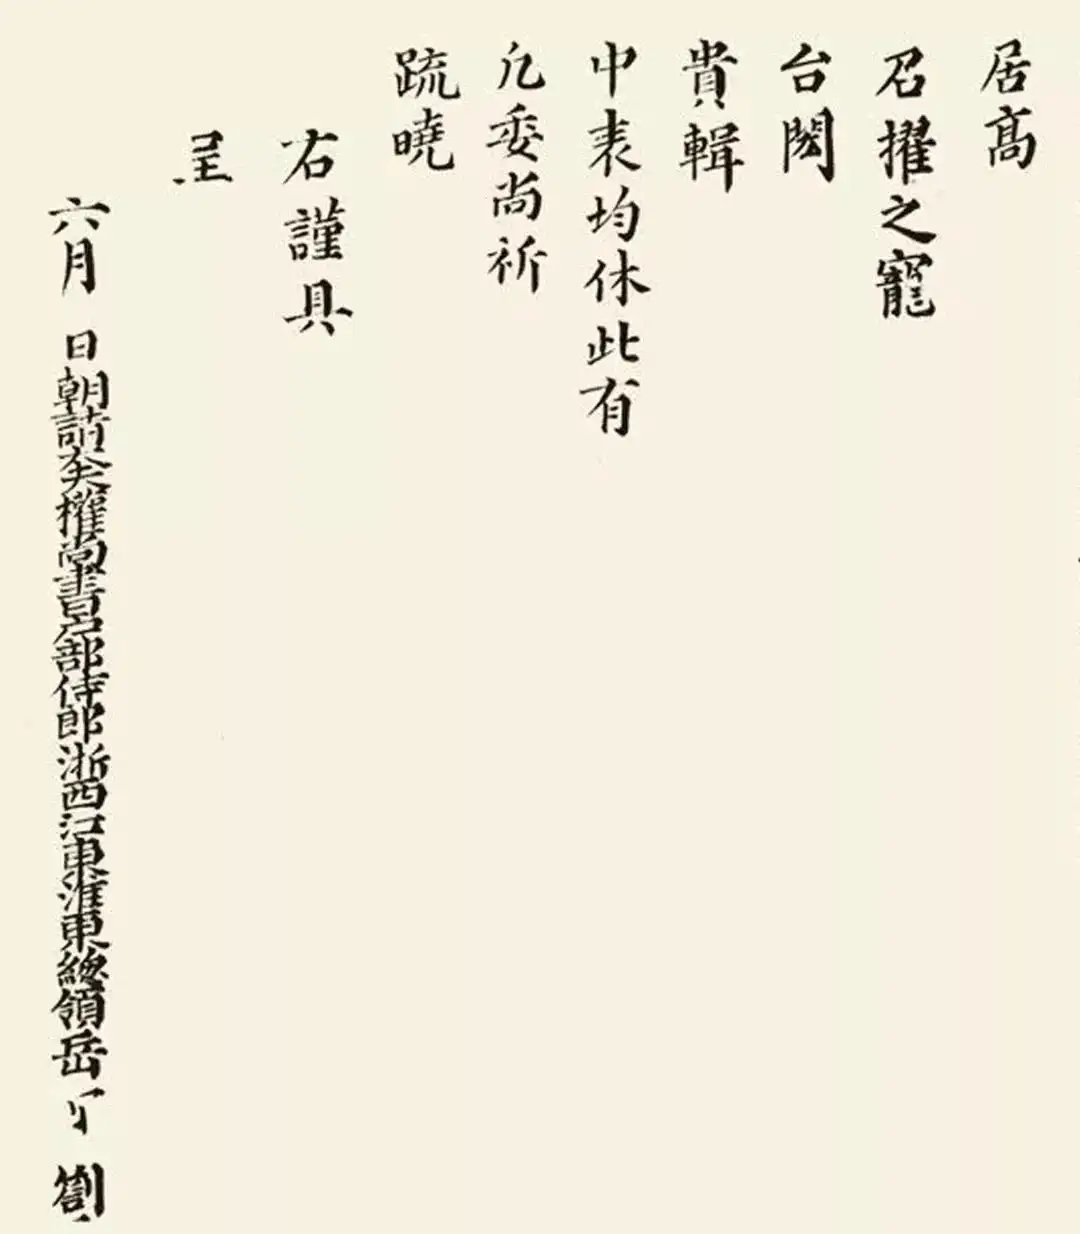 居高
召擢之寵
台閎
貴輯
中表均休此有
凢委尚祈
疏曉
右謹具
呈
六月 日朝請大夫權尚書戶部侍郎浙西江東淮東總領岳 劄